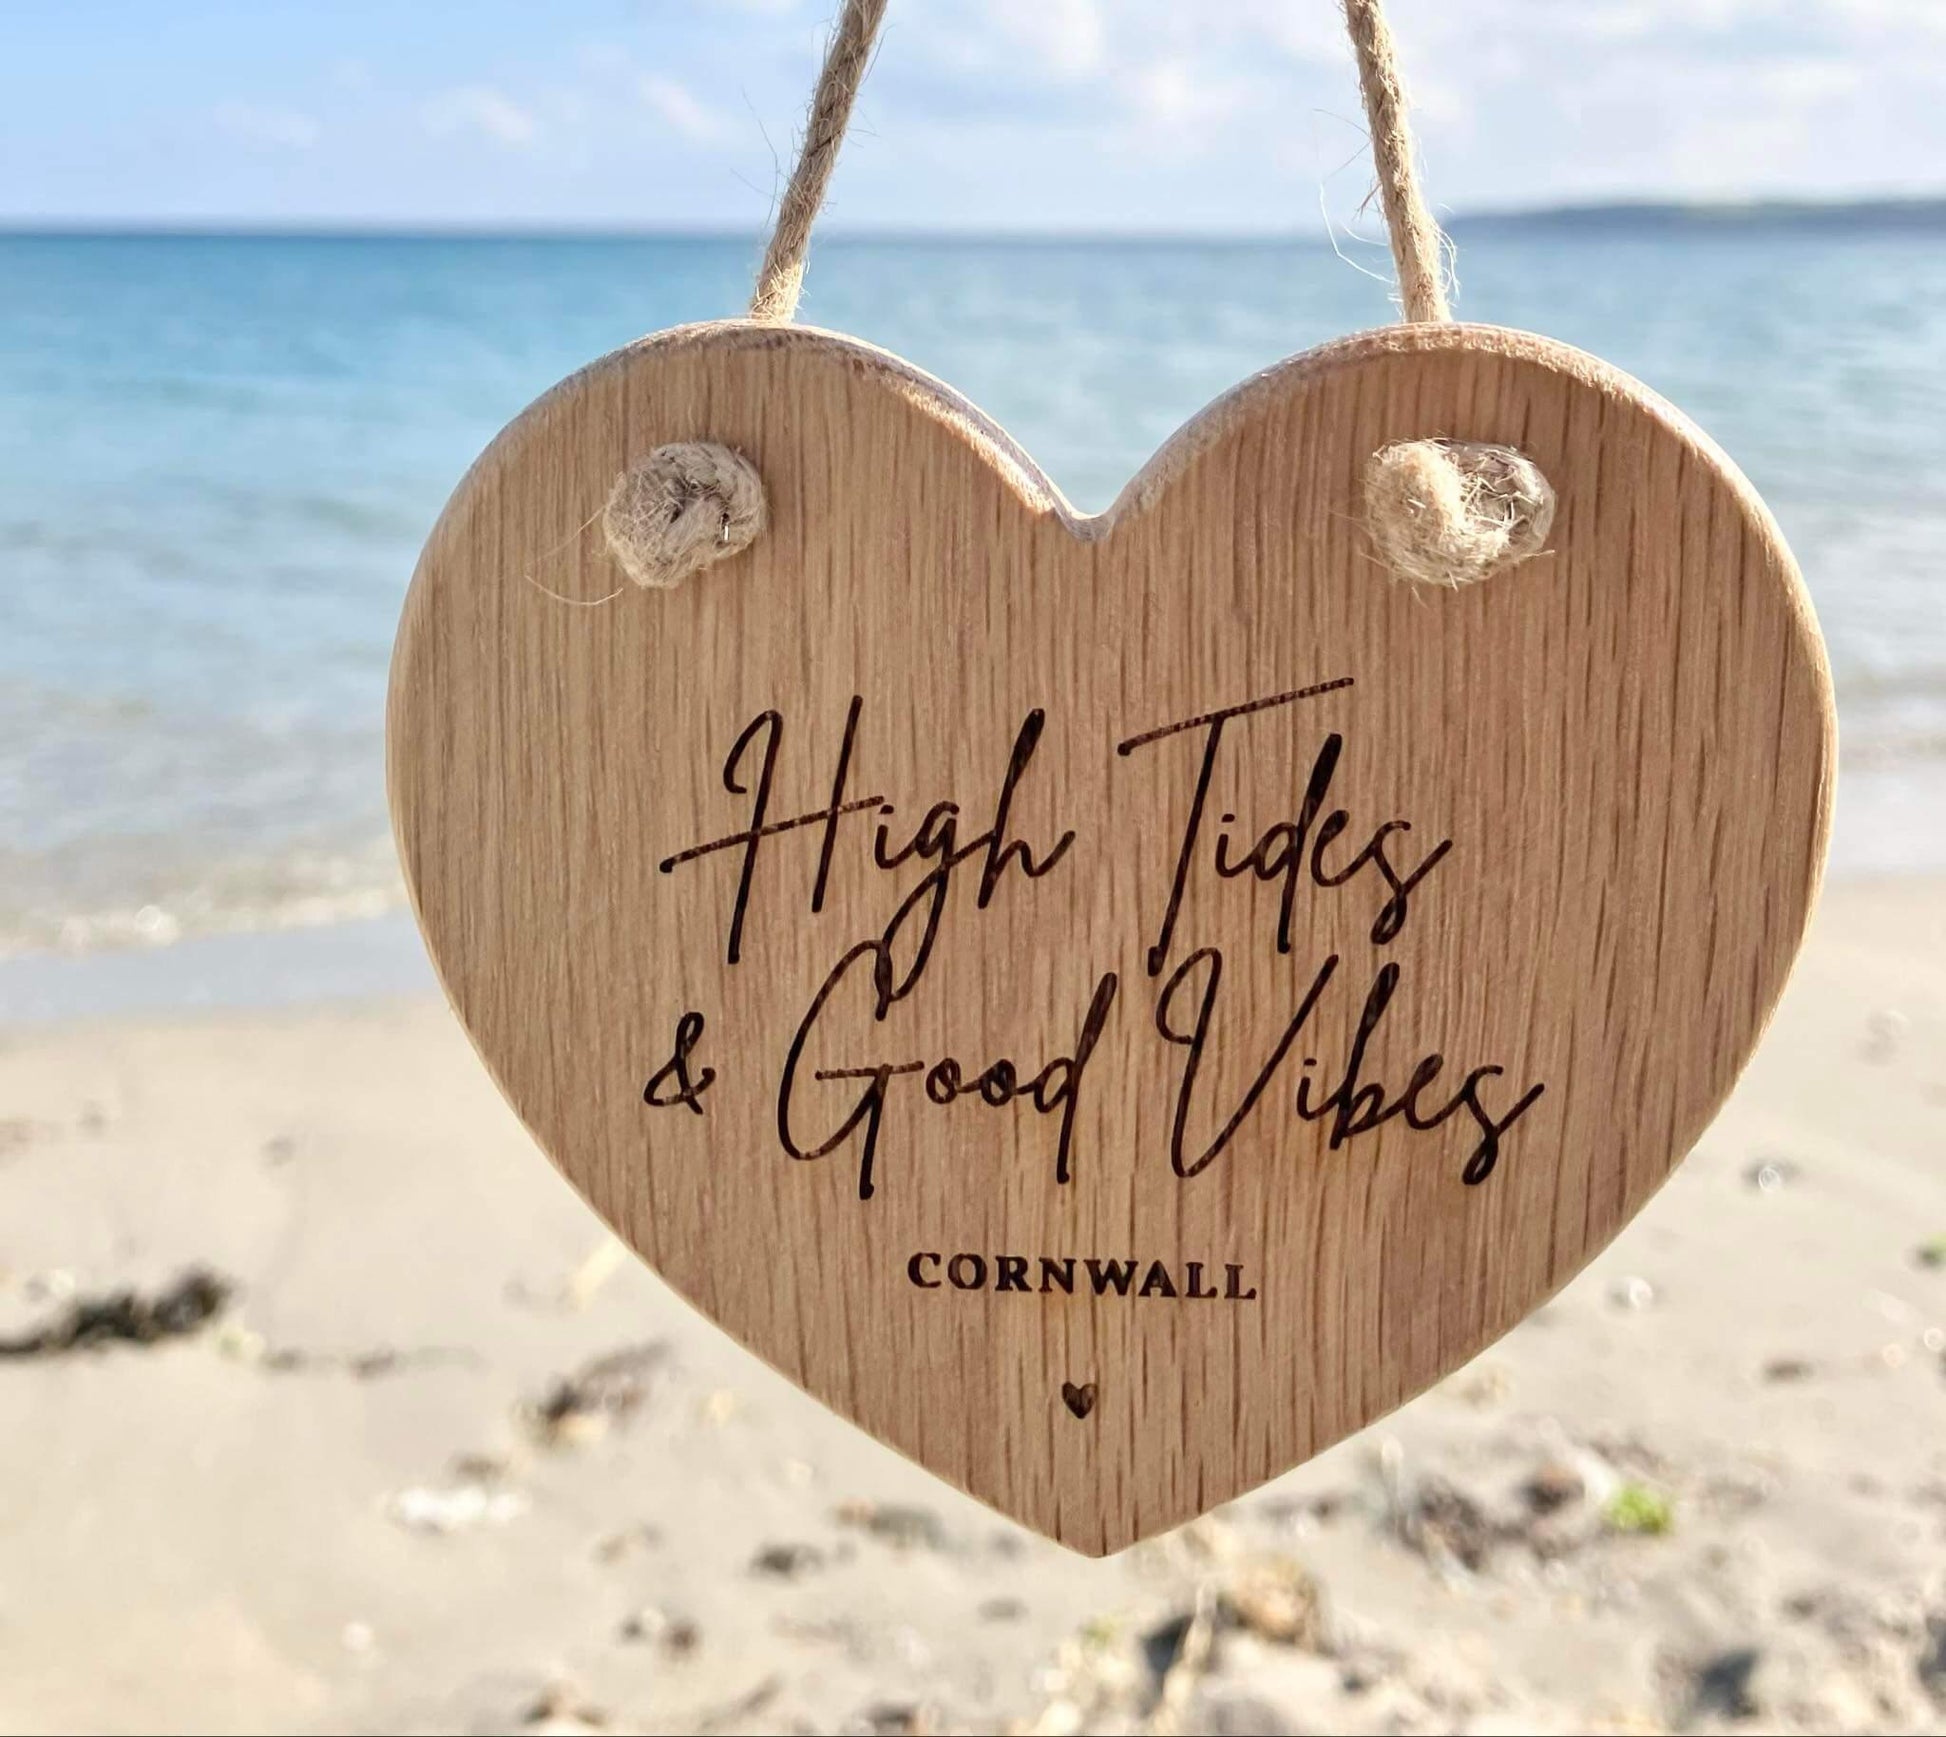 High Tides
& Good Vibes
CORNWALL